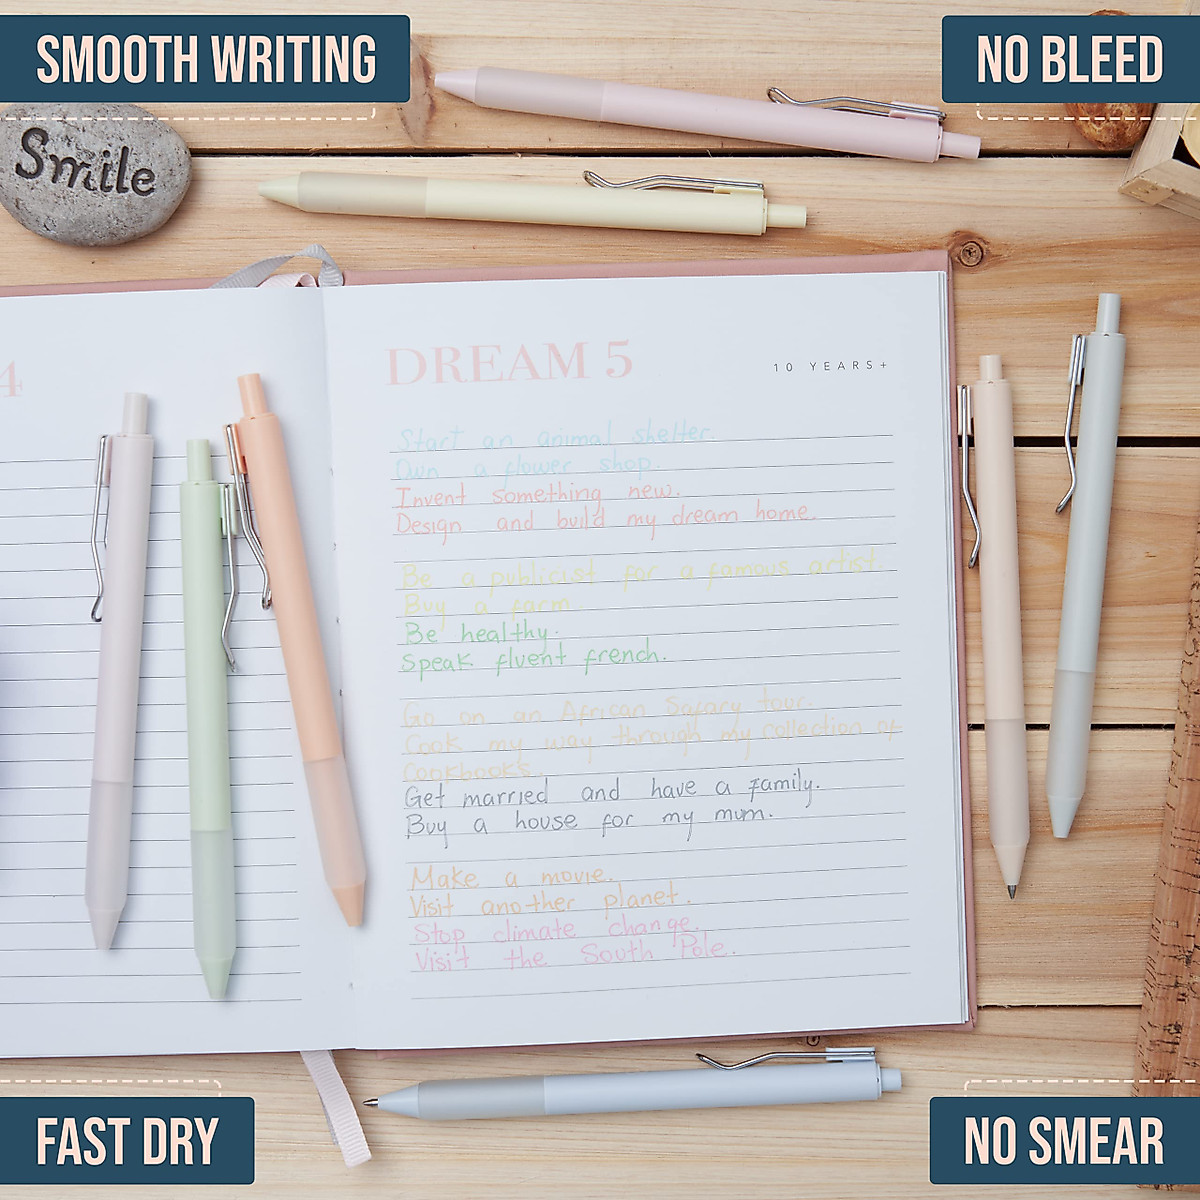 SMOOTH WRITING
NO BLEED
Smile
4
DREAM 5
10 YEARS+
Start an animal shelter.
Own a flower shop.
Invent something new.
Design and build my dream home.
Be a publicist for a famous artist
Buy a farm
Be healthy.
Speak fluent french.
Go on an African Safary tour.
Cook my way through my collection of
Cookbooks.
Get married and have a family.
Buy a house for my mum.
Make a movie.
Visit another planet.
Stop climate change.
Visit the South Pole.
FAST DRY
NO SMEAR